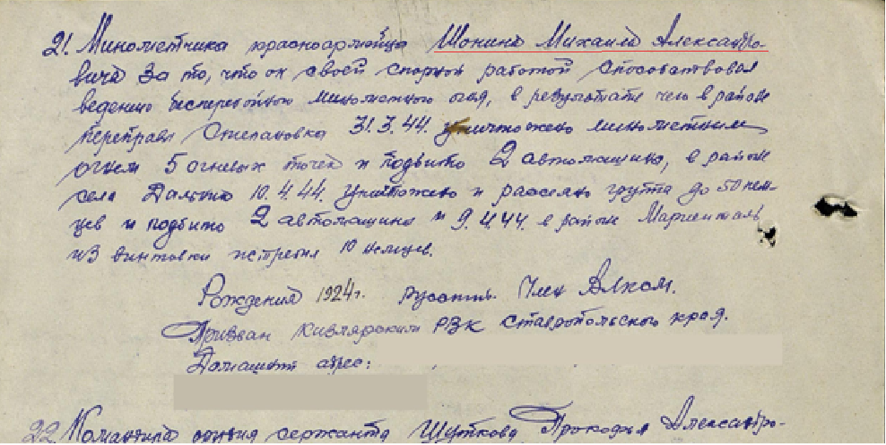 21. Минометчика красноармейца Шонина Михаила Александро-
вича за то, что он своей спорной работой способствовал
ведению бесперебойного минометного огня, в результате чего в районе
переправы Степановка 31.3.44. уничтожено минометным
огнем 5 огневых точек и подбито 2 автомашины, в районе
села Дальние 10.4.44. уничтожено и рассеяно группа до 50 нем-
цев и подбито 2 автомашины и 9.4.44. в районе Мариенталь
из винтовки истребил 10 немцев.
Рождения 1924г. русский. Член ВЛКСМ.
Призван Кизлярским РВК Ставропольского края.
Домашний адрес:
22. Командира отделения сержанта Шуткова Прокофья Александро-